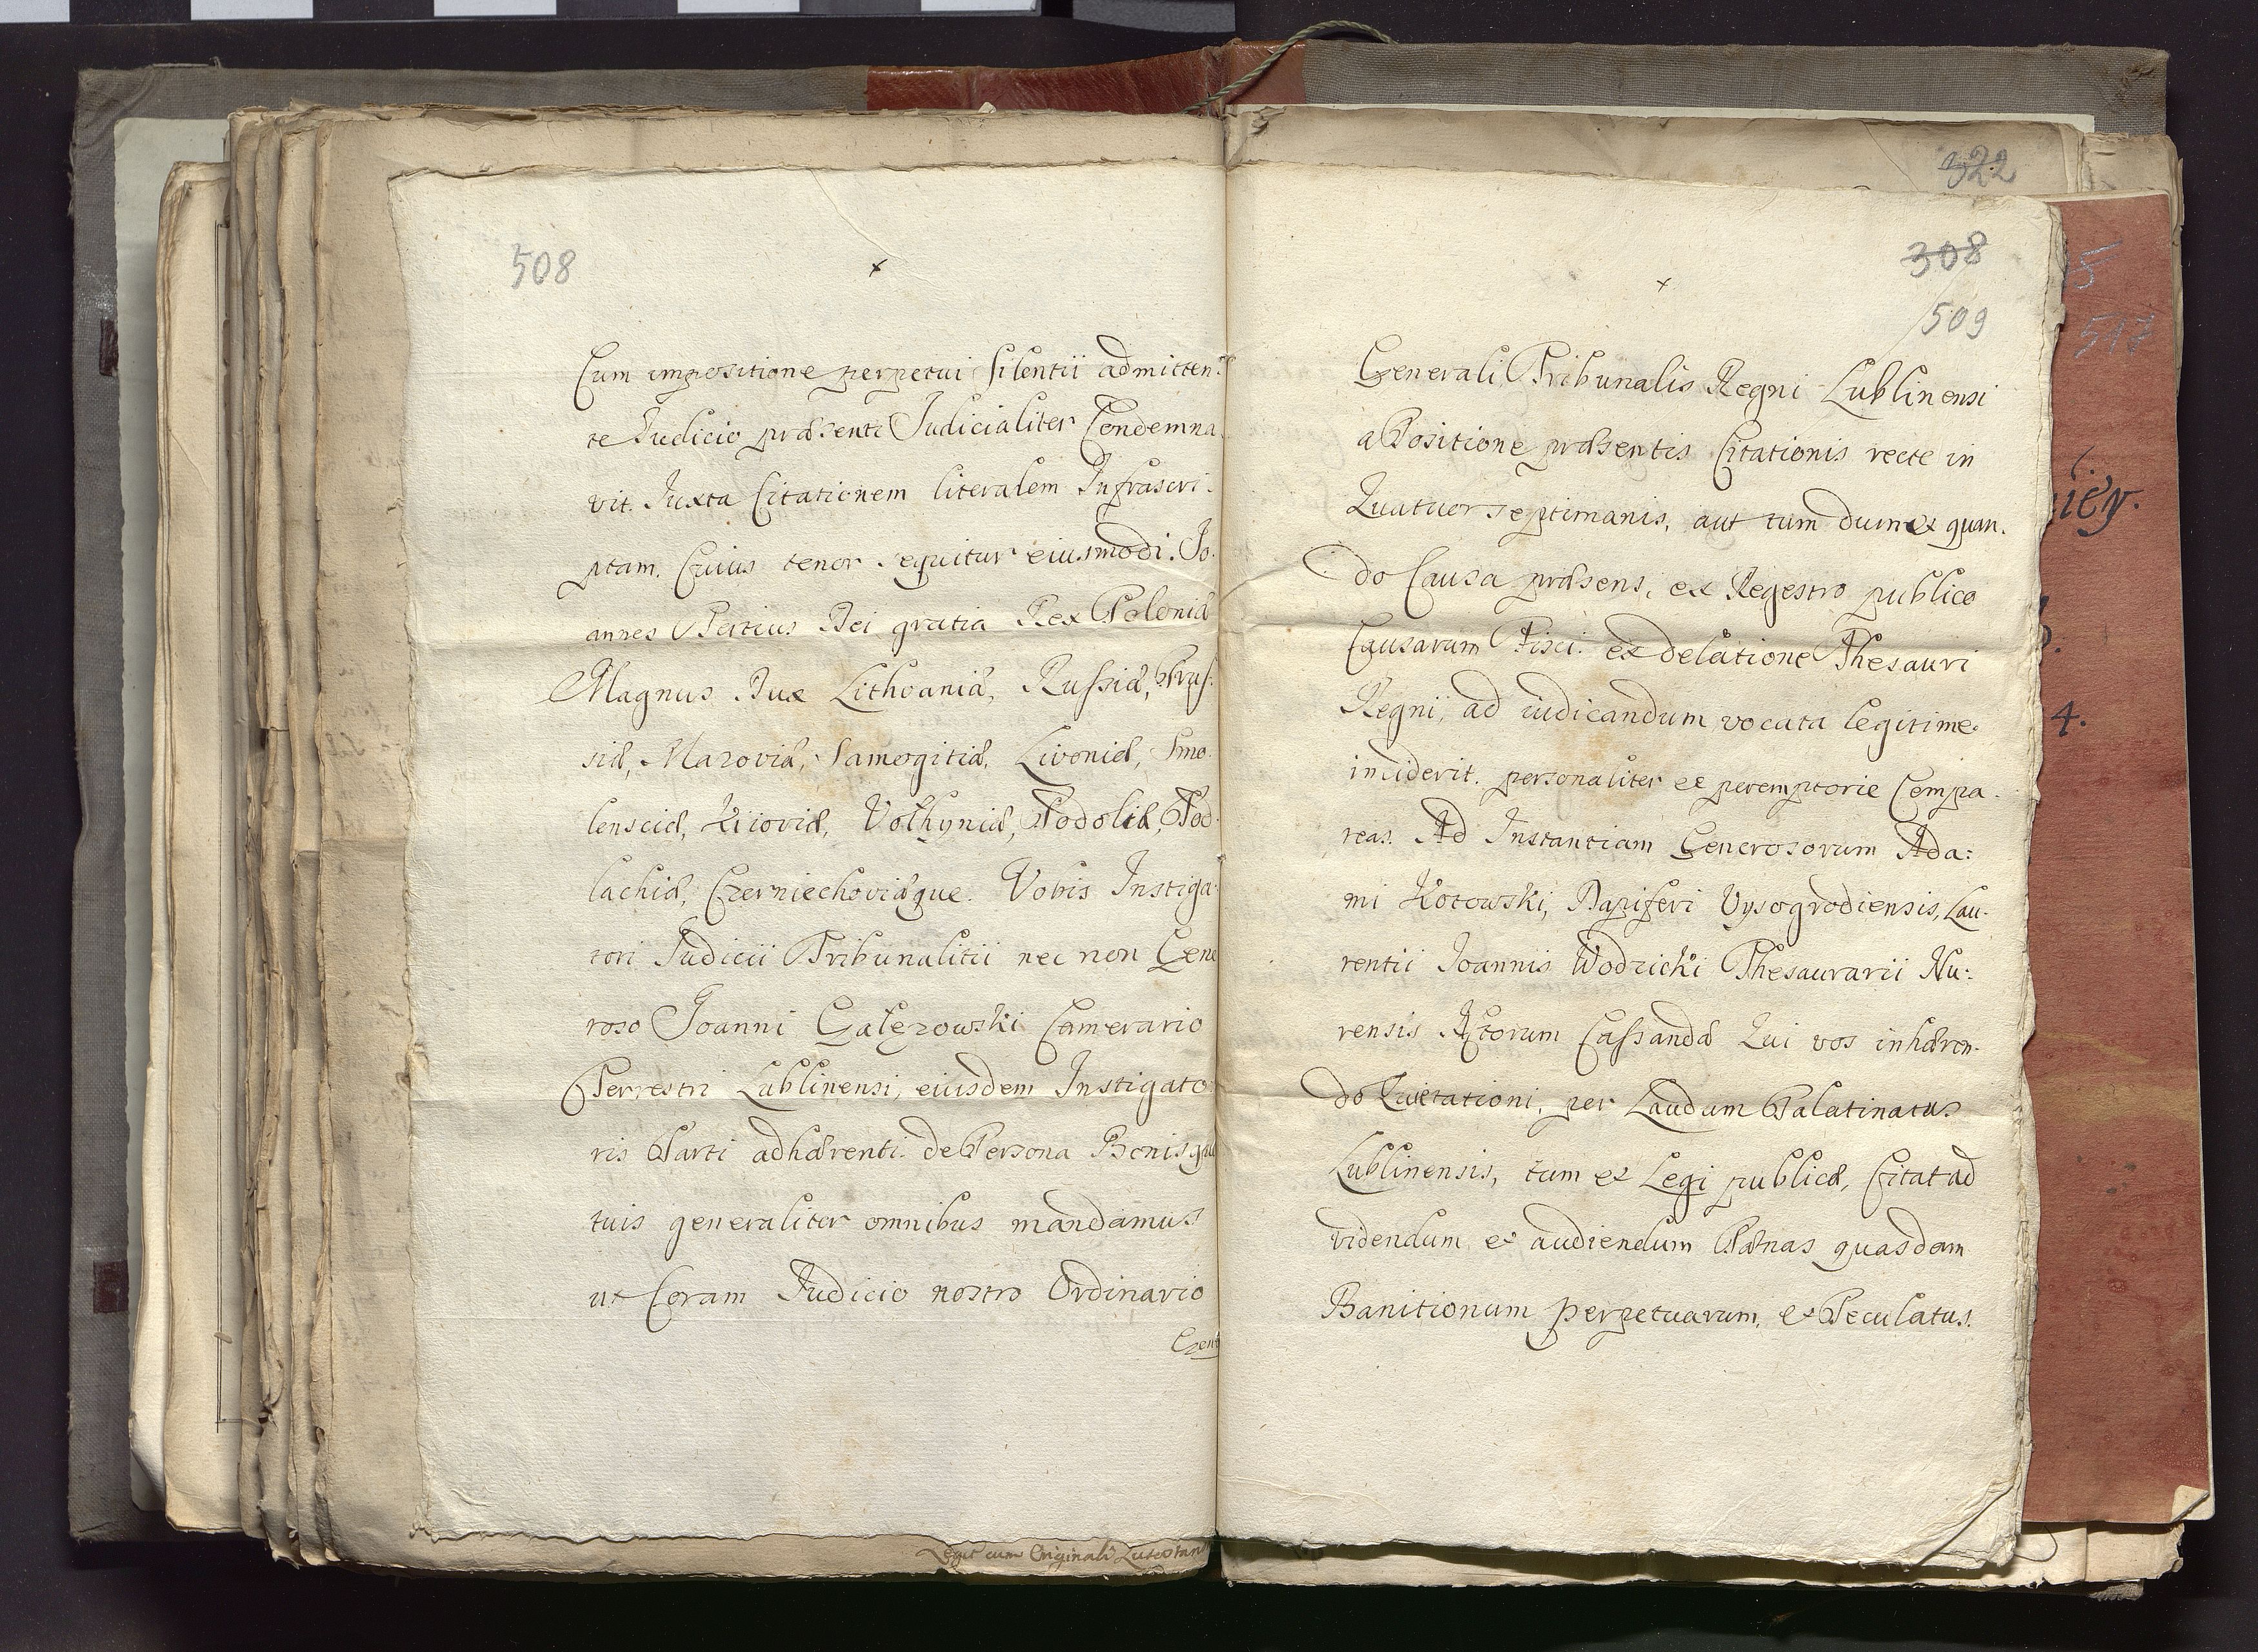 508
x
Cum impositione perpetui silentii admitten:
te Judicio præsenti Judicialiter Condemna
vit. Juxta Citationem literalem Infrascri-
ptam. Cuius tenor sequitur eiusmodi. Jo-
annes Tertius Dei gratia Rex Poloniæ
Magnus Dux Lithvaniæ, Russiæ, Prus-
siæ, Mazoviæ, Samogitiæ, Livoniæ, Smo-
lensciæ, Kijoviæ, Volhyniæ, Podoliæ, Pod-
lachiæ, Czerniechoviæque. Vobis Instiga-
tori Judicii Tribunalitii nec non Gene
roso Joanni Gałęzowski Camerario
Terrestri Lublinensi, eiusdem Instigato
ris Parti adhærenti. de Persona Bonisque
tuis generaliter omnibus mandamus
ut Coram Judicio nostro Ordinario
Legit cum Originali
322
308
509
x
Generali Tribunalis Regni Lublinensi
a Positione præsentis Citationis recte in
Quatuor septimanis, aut tum dum et quan-
do Causa præsens, ex Regestro publico
Causarum Fisci. ex delatione Thesauri
Regni, ad iudicandum vocata legitime
inciderit. personaliter et peremptorie Compa-
reas. Ad Instantiam Generosorum Ada:
mi Kotowski, Dapiferi Vysogrodiensis, Lau-
rentii Joannis Wodzicki Thesaurarii Nu:
rensis Actorum Cassandæ Qui vos inhæren-
do Quietationi, per Laudum Palatinatus
Lublinensis, tum et Legi publicæ, Citat ad
videndum et audiendum Pænas quasdam
Banitionum perpetuarum, et Peculatus.
5
517
4.